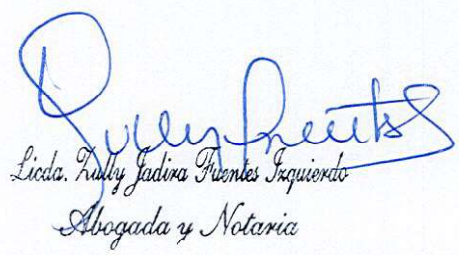 Zully Fuentes
Licda. Zully Jadira Fuentes Izquierdo
Abogada y Notaria